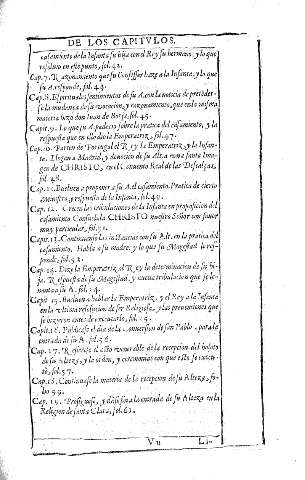 DE LOS CAPITVLOS.
casamiento de la Infanta su hija con el Rey su hermano, y lo que
resulto en este punto, fol. 42.
Cap. 7. Razonamiento que su Confessor haze a la Infanta, y lo que
su A. responde, fol. 44.
Cap. 8. Espirituales sentimientos de su A. con la noticia de pretender-
se la mudança de su vocacion, y razonamiento, que en la misma
materia hizo don Iuan de Borja, fol. 45.
Capit. 9. Lo que su A. padecio sobre la pratica del casamiento, y la
respuesta que en ello dio la Emperatriz, fol. 47.
Cap. 10. Parten de Portugal el Rey la Emperatriz, y la Infan-
ta. Llegan a Madrid, y deuocion de su Alteza con una santa Ima-
gen de CHRISTO, en el Conuento Real de las Descalças,
fol. 48.
Cap. 11. Buelven a proponer a su A. el casamiento. Pratica de cierto
ministro, y respuesta de la Infanta, fol. 49.
Cap. 12. Crecen las tribulaciones de la Infanta en proposicion del
casamiento. Consuelala CHRISTO nuestro Señor con fauor
muy particular, fol. 51.
Capit. 13. Continuanse las instancias con su Alt. en la pratica del
casamiento. Habla a su madre, y lo que su Magestad le res-
ponde, fol. 52.
Cap. 14. Dize la Emperatriz al Rey la determinacion de su hi-
ja. Respuesta de su Magestad, y nueua tribulacion que se le-
uanta a su A. fol. 54.
Capit. 15. Bueluen a hablar la Emperatriz, y el Rey a la Infanta
en la ultima resolucion de ser Religiosa, y las preuenciones que
se hizieron antes de executarlo, fol. 55.
Capit. 16. Publicase el dia de la Conuersion de san Pablo, para la
entrada de su A. fol. 56.
Cap. 17. Refierese el acto venerable de la recepcion del habito
de su Alteza, y la orden, y ceremonias con que esto se execu-
tò, fol. 57.
Cap. 18. Continuase la materia de la recepcion de su Alteza, fo-
lio 59.
Cap. 19. Prosiguese, y dase fin a la entrada de su Alteza en la
Religion de santa Clara, fol. 61.
Vu
Li-